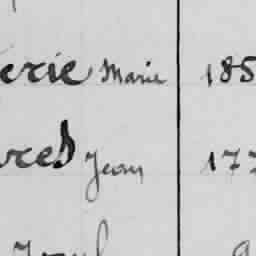 erie Marie 185
vres Jean 177